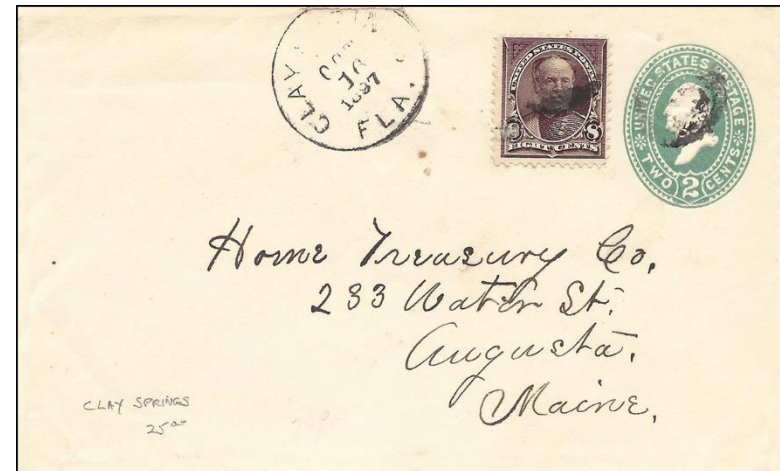 CLAY
FLA.
16
1897
UNITED STATES POSTAGE
8 8
EIGHT CENTS
UNITED STATES POSTAGE
TWO 2 CENTS
Home Treasury Co.
233 Water St.
Augusta.
Maine.
CLAY SPRINGS
25⁰⁰